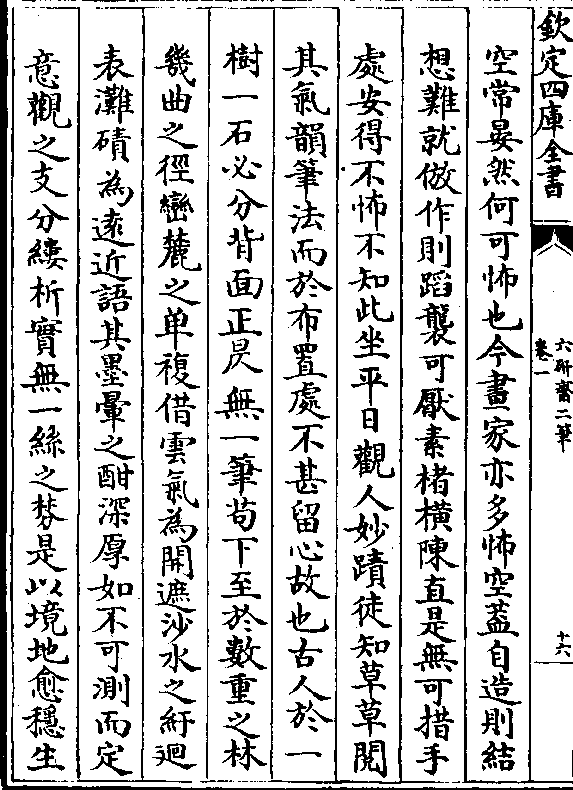 欽定四庫全書
六研齋二筆
卷一
十六
空常晏然何可怖也今畫家亦多怖空蓋自造則結
想難就倣作則蹈襲可厭素楮橫陳直是無可措手
處安得不怖不知此坐平日觀人妙蹟徒知草草閱
其氣韻筆法而於布置處不甚留心故也古人於一
樹一石必分背面正昃無一筆苟下至於數重之林
幾曲之徑巒麓之单複借雲氣為開遮沙水之紆迴
表灘磧為遠近語其墨暈之酣深厚如不可測而定
意觀之支分縷析實無一絲之棼是以境地愈穩生